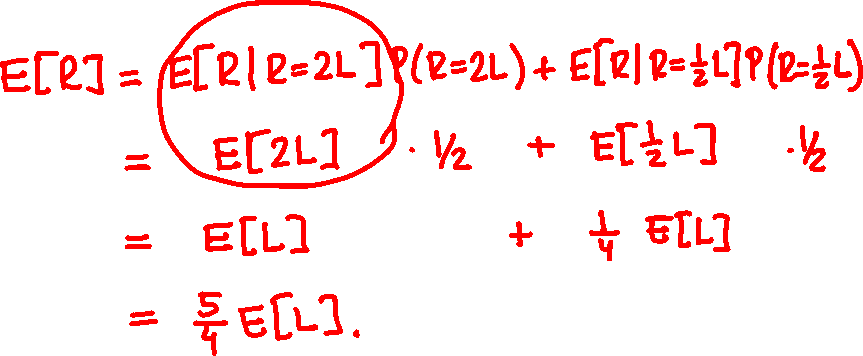 E[R] = E[R|R=2L]P(R=2L) + E[R|R=½L]P(R=½L)
= E[2L] · 1/2 + E[½L] · 1/2
= E[L] + ¼ E[L]
= 5/4 E[L].